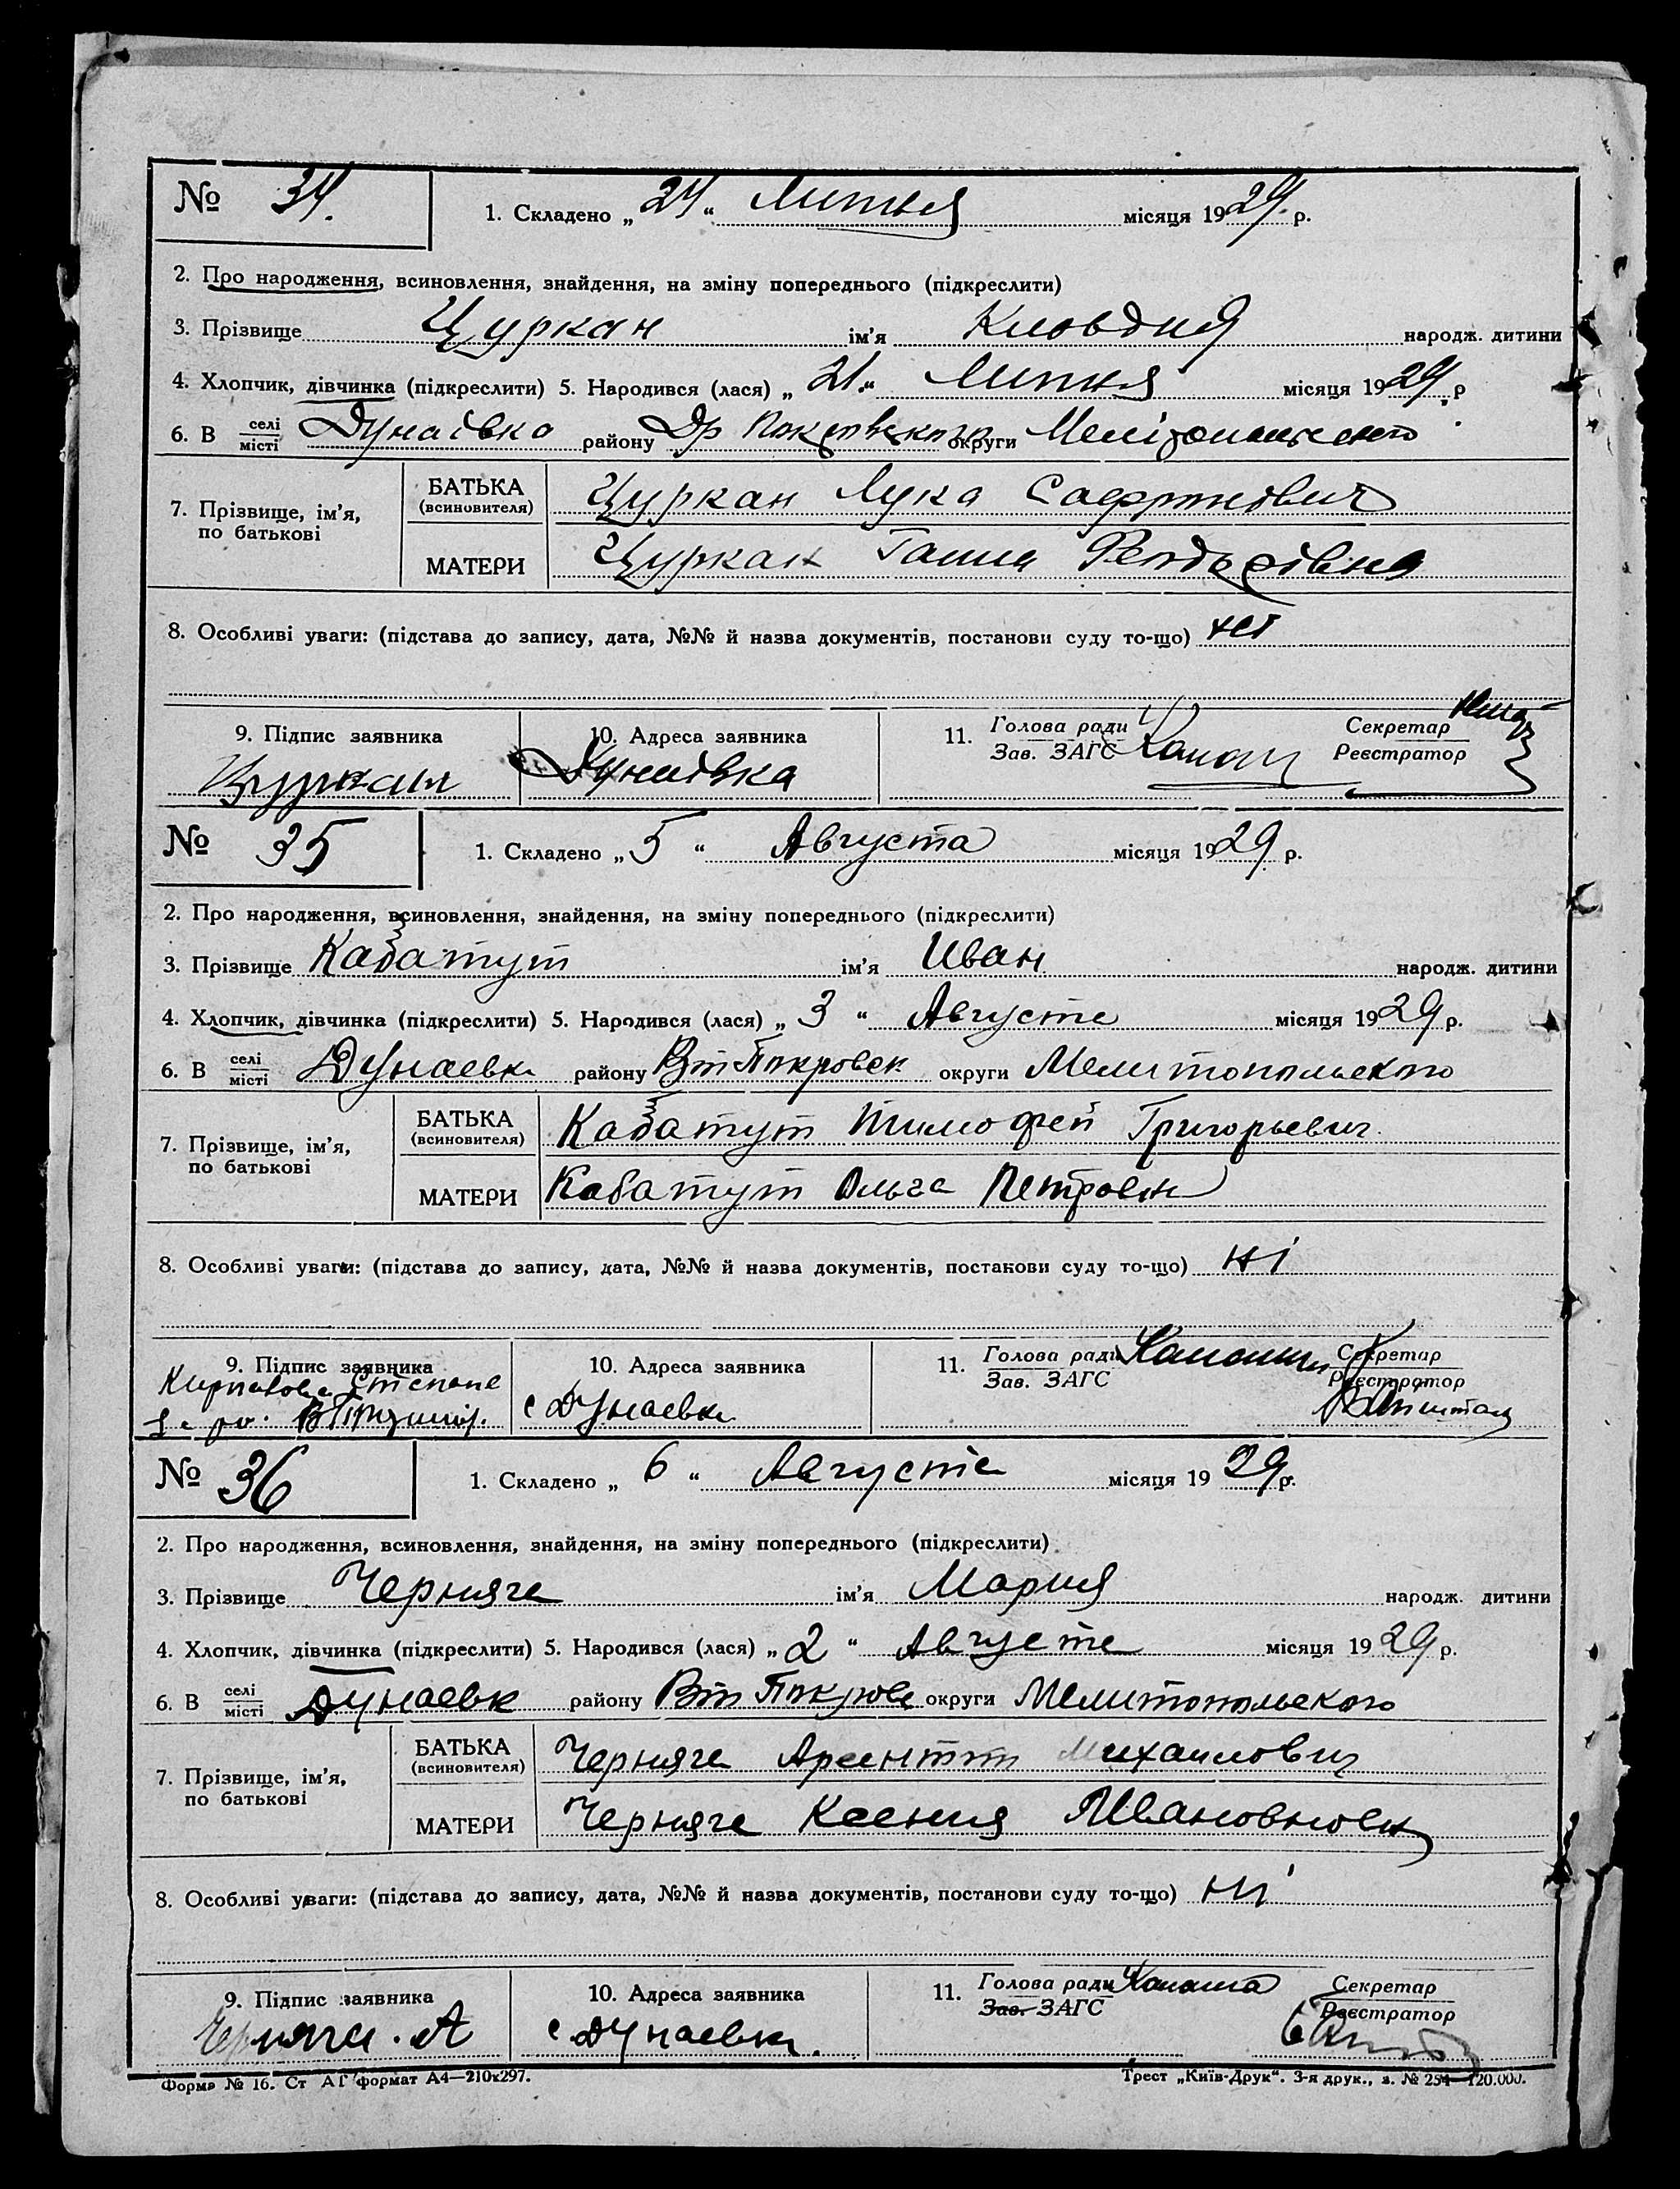 № 34. 1. Складено „24“ Липня місяця 1929. р.
2. Про народження, всиновлення, знайдення, на зміну попереднього (підкреслити)
3. Прізвище Цуркан ім’я Кловдия народж. дитини
4. Хлопчик, дівчинка (підкреслити) 5. Народився (лася) „21.“ Липня місяця 1929. р
6. В селі/місті Дунаівка району округи
7. Прізвище, ім’я, по батькові
БАТЬКА (всиновителя) Цуркан Лука
МАТЕРИ Цуркан Ганна
8. Особливі уваги: (підстава до запису, дата, №№ й назва документів, постанови суду то-що) ні
9. Підпис заявника 10. Адреса заявника 11. Голова ради Зав. ЗАГС Секретар Реєстратор
Цуркан Дунаівка
№ 35 1. Складено „5“ Августа місяця 1929 р.
2. Про народження, всиновлення, знайдення, на зміну попереднього (підкреслити)
3. Прізвище Кабатут ім’я Иван народж. дитини
4. Хлопчик, дівчинка (підкреслити) 5. Народився (лася) „3“ Августа місяця 1929 р.
6. В селі/місті Дунаевка району Вт Покровск округи Мелитопольского
7. Прізвище, ім’я, по батькові
БАТЬКА (всиновителя) Кабатут Тимофей Григорьевич
МАТЕРИ Кабатут Ольга Петровн
8. Особливі уваги: (підстава до запису, дата, №№ й назва документів, постанови суду то-що) ні
9. Підпис заявника 10. Адреса заявника 11. Голова ради Зав. ЗАГС Секретар Реєстратор
с Дунаевка
№ 36 1. Складено „6“ Августа місяця 1929 р.
2. Про народження, всиновлення, знайдення, на зміну попереднього (підкреслити)
3. Прізвище Черняга ім’я Мария народж. дитини
4. Хлопчик, дівчинка (підкреслити) 5. Народився (лася) „2“ Августа місяця 1929 р.
6. В селі/місті Дунаевк району Вт Покровс округи Мелитопольского
7. Прізвище, ім’я, по батькові
БАТЬКА (всиновителя) Черняга Михаилович
МАТЕРИ Черняга Ксения
8. Особливі уваги: (підстава до запису, дата, №№ й назва документів, постанови суду то-що) ні
9. Підпис заявника 10. Адреса заявника 11. Голова ради Зав. ЗАГС Секретар Реєстратор
Черняга. А с Дунаевка.
Форма № 16. Ст АГ формат А4—210х297. Трест „Київ-Друк“. 3-я друк., з. № 254—120.000.